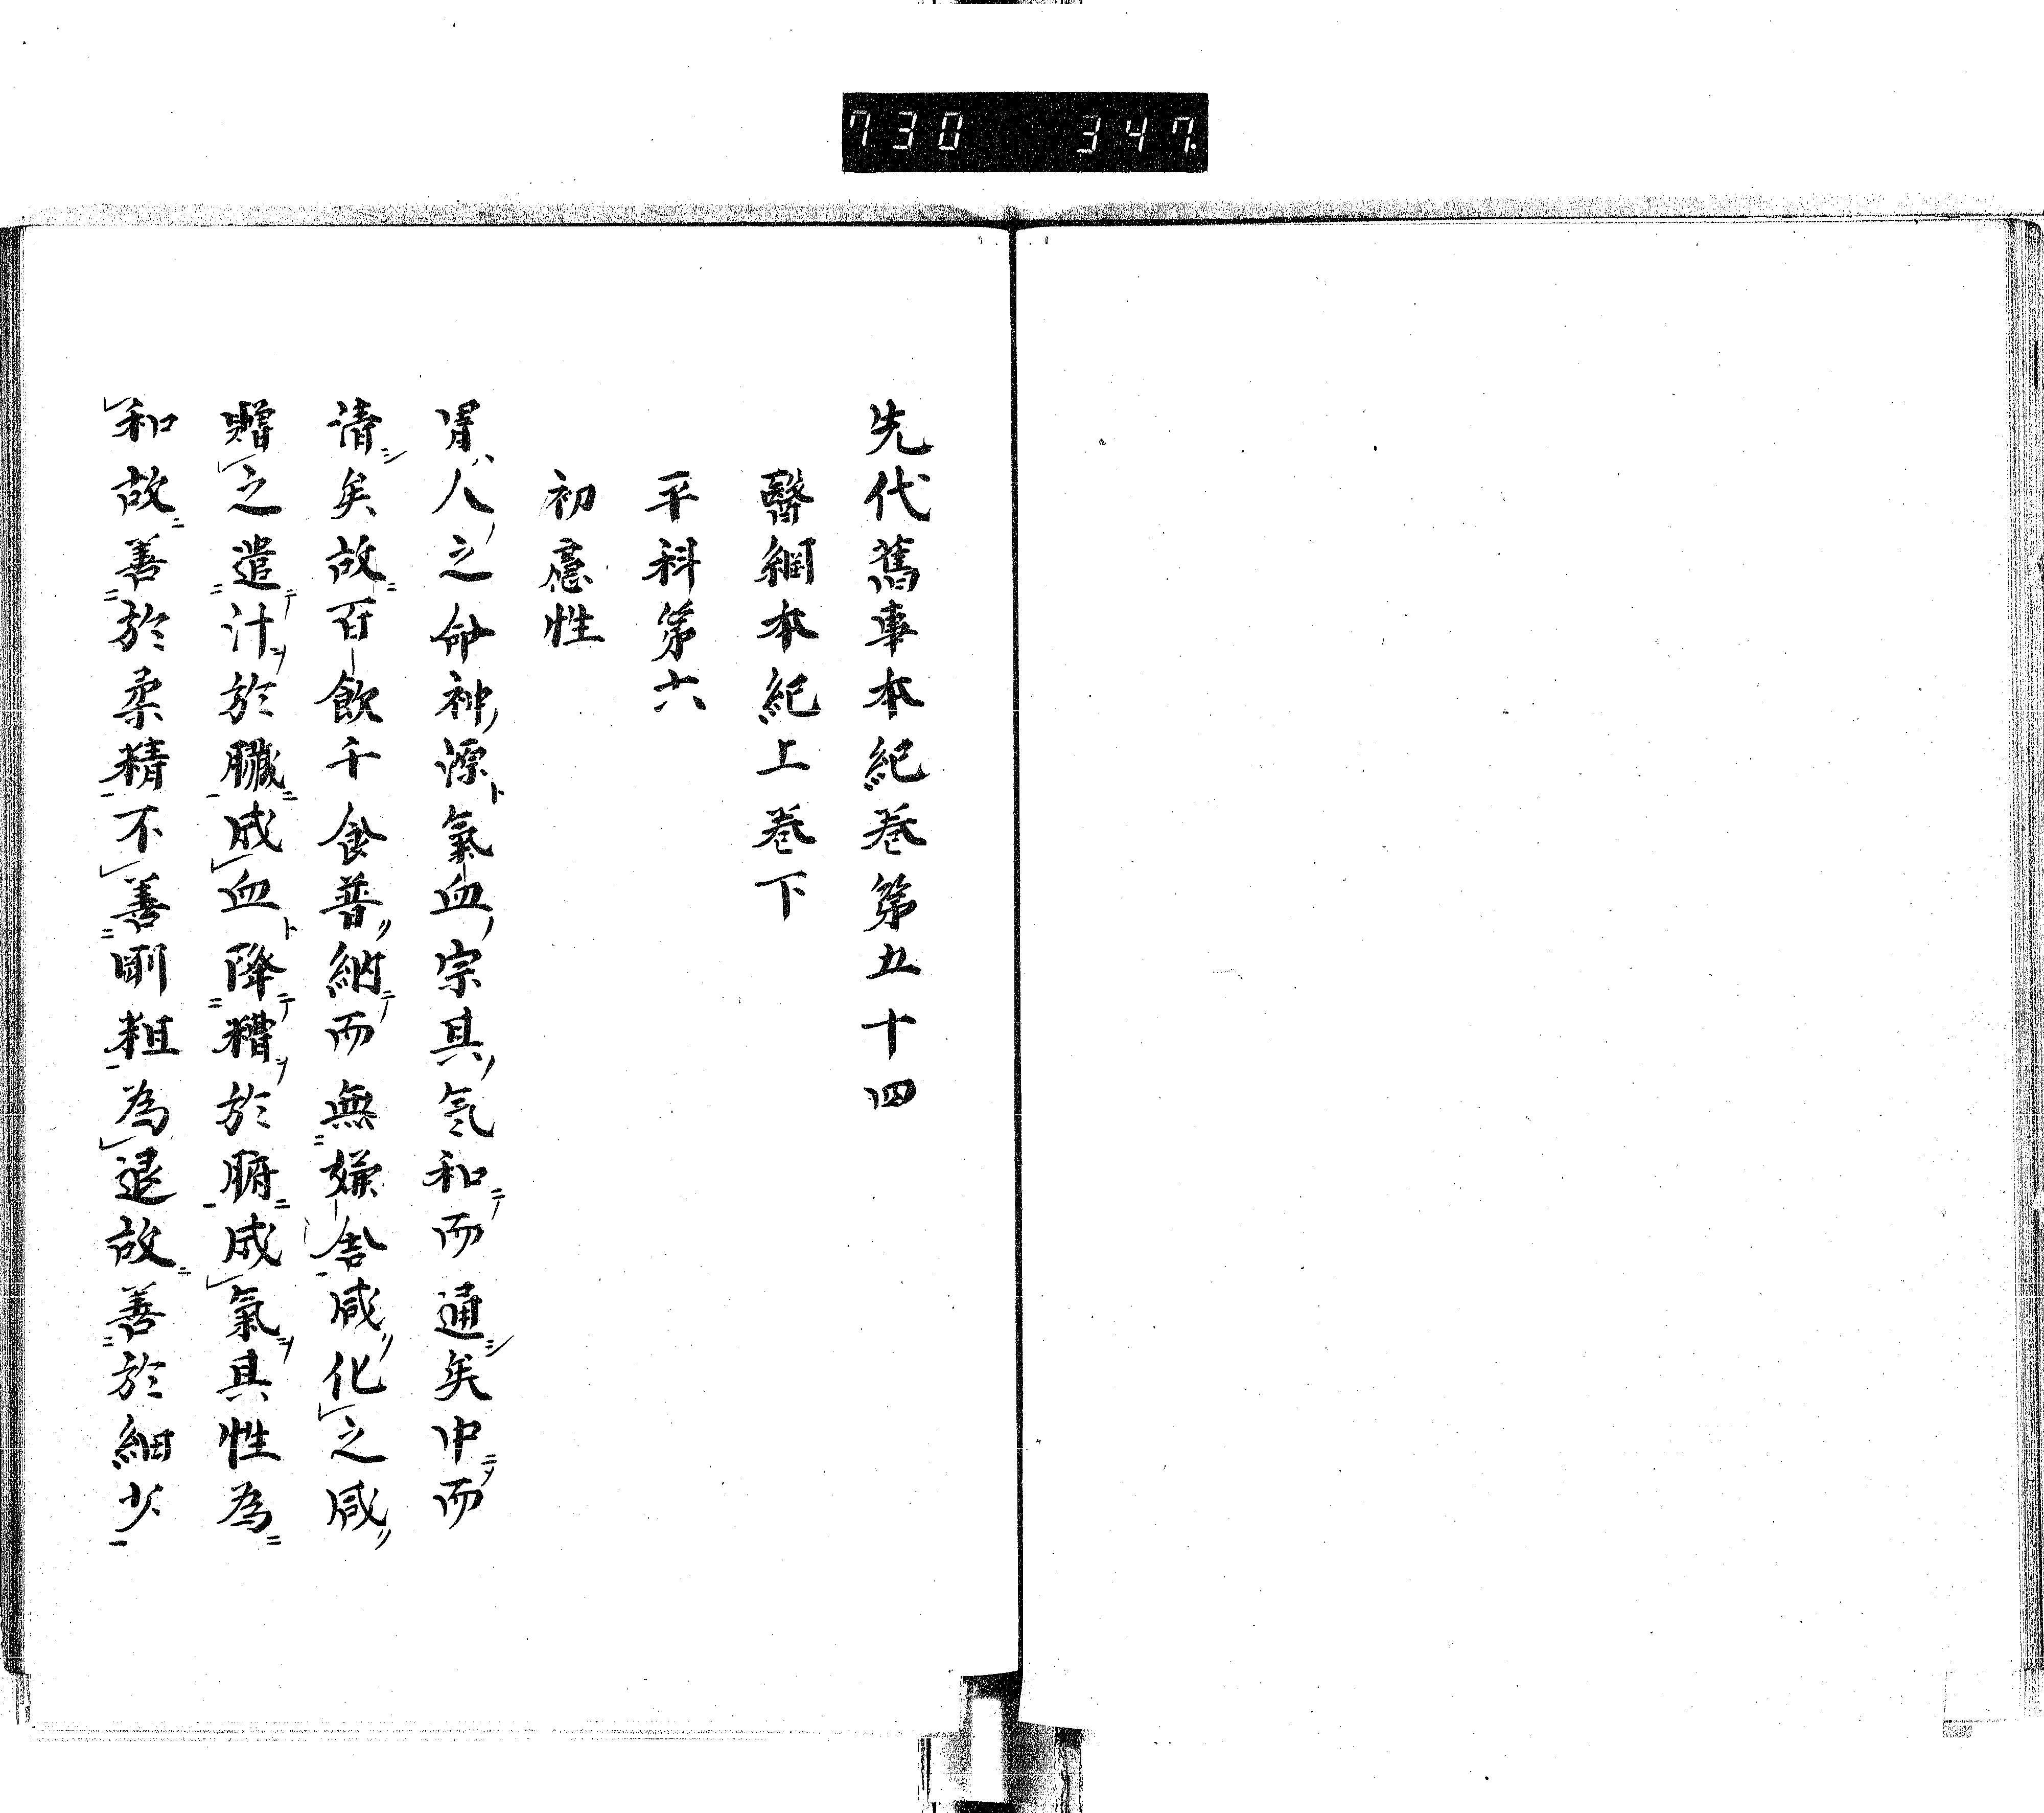 730 347.
先代舊事本紀巻第五十四
醫綱本紀上巻下
平科第六
初應性
胃ハ人ノ之命神ノ源ト氣血ノ宗其ノ氣和テ而通シ矣中ニメ而
清シ矣故ニ百飲千食普ク納テ而無嫌舎咸ク化之咸ク
贈之遣テ汁ヲ於臟ニ成血ト降テ糟ヲ於腑ニ成氣ヲ其性為ニ
和故ニ善於柔精不善剛粗為退故ニ善於細少